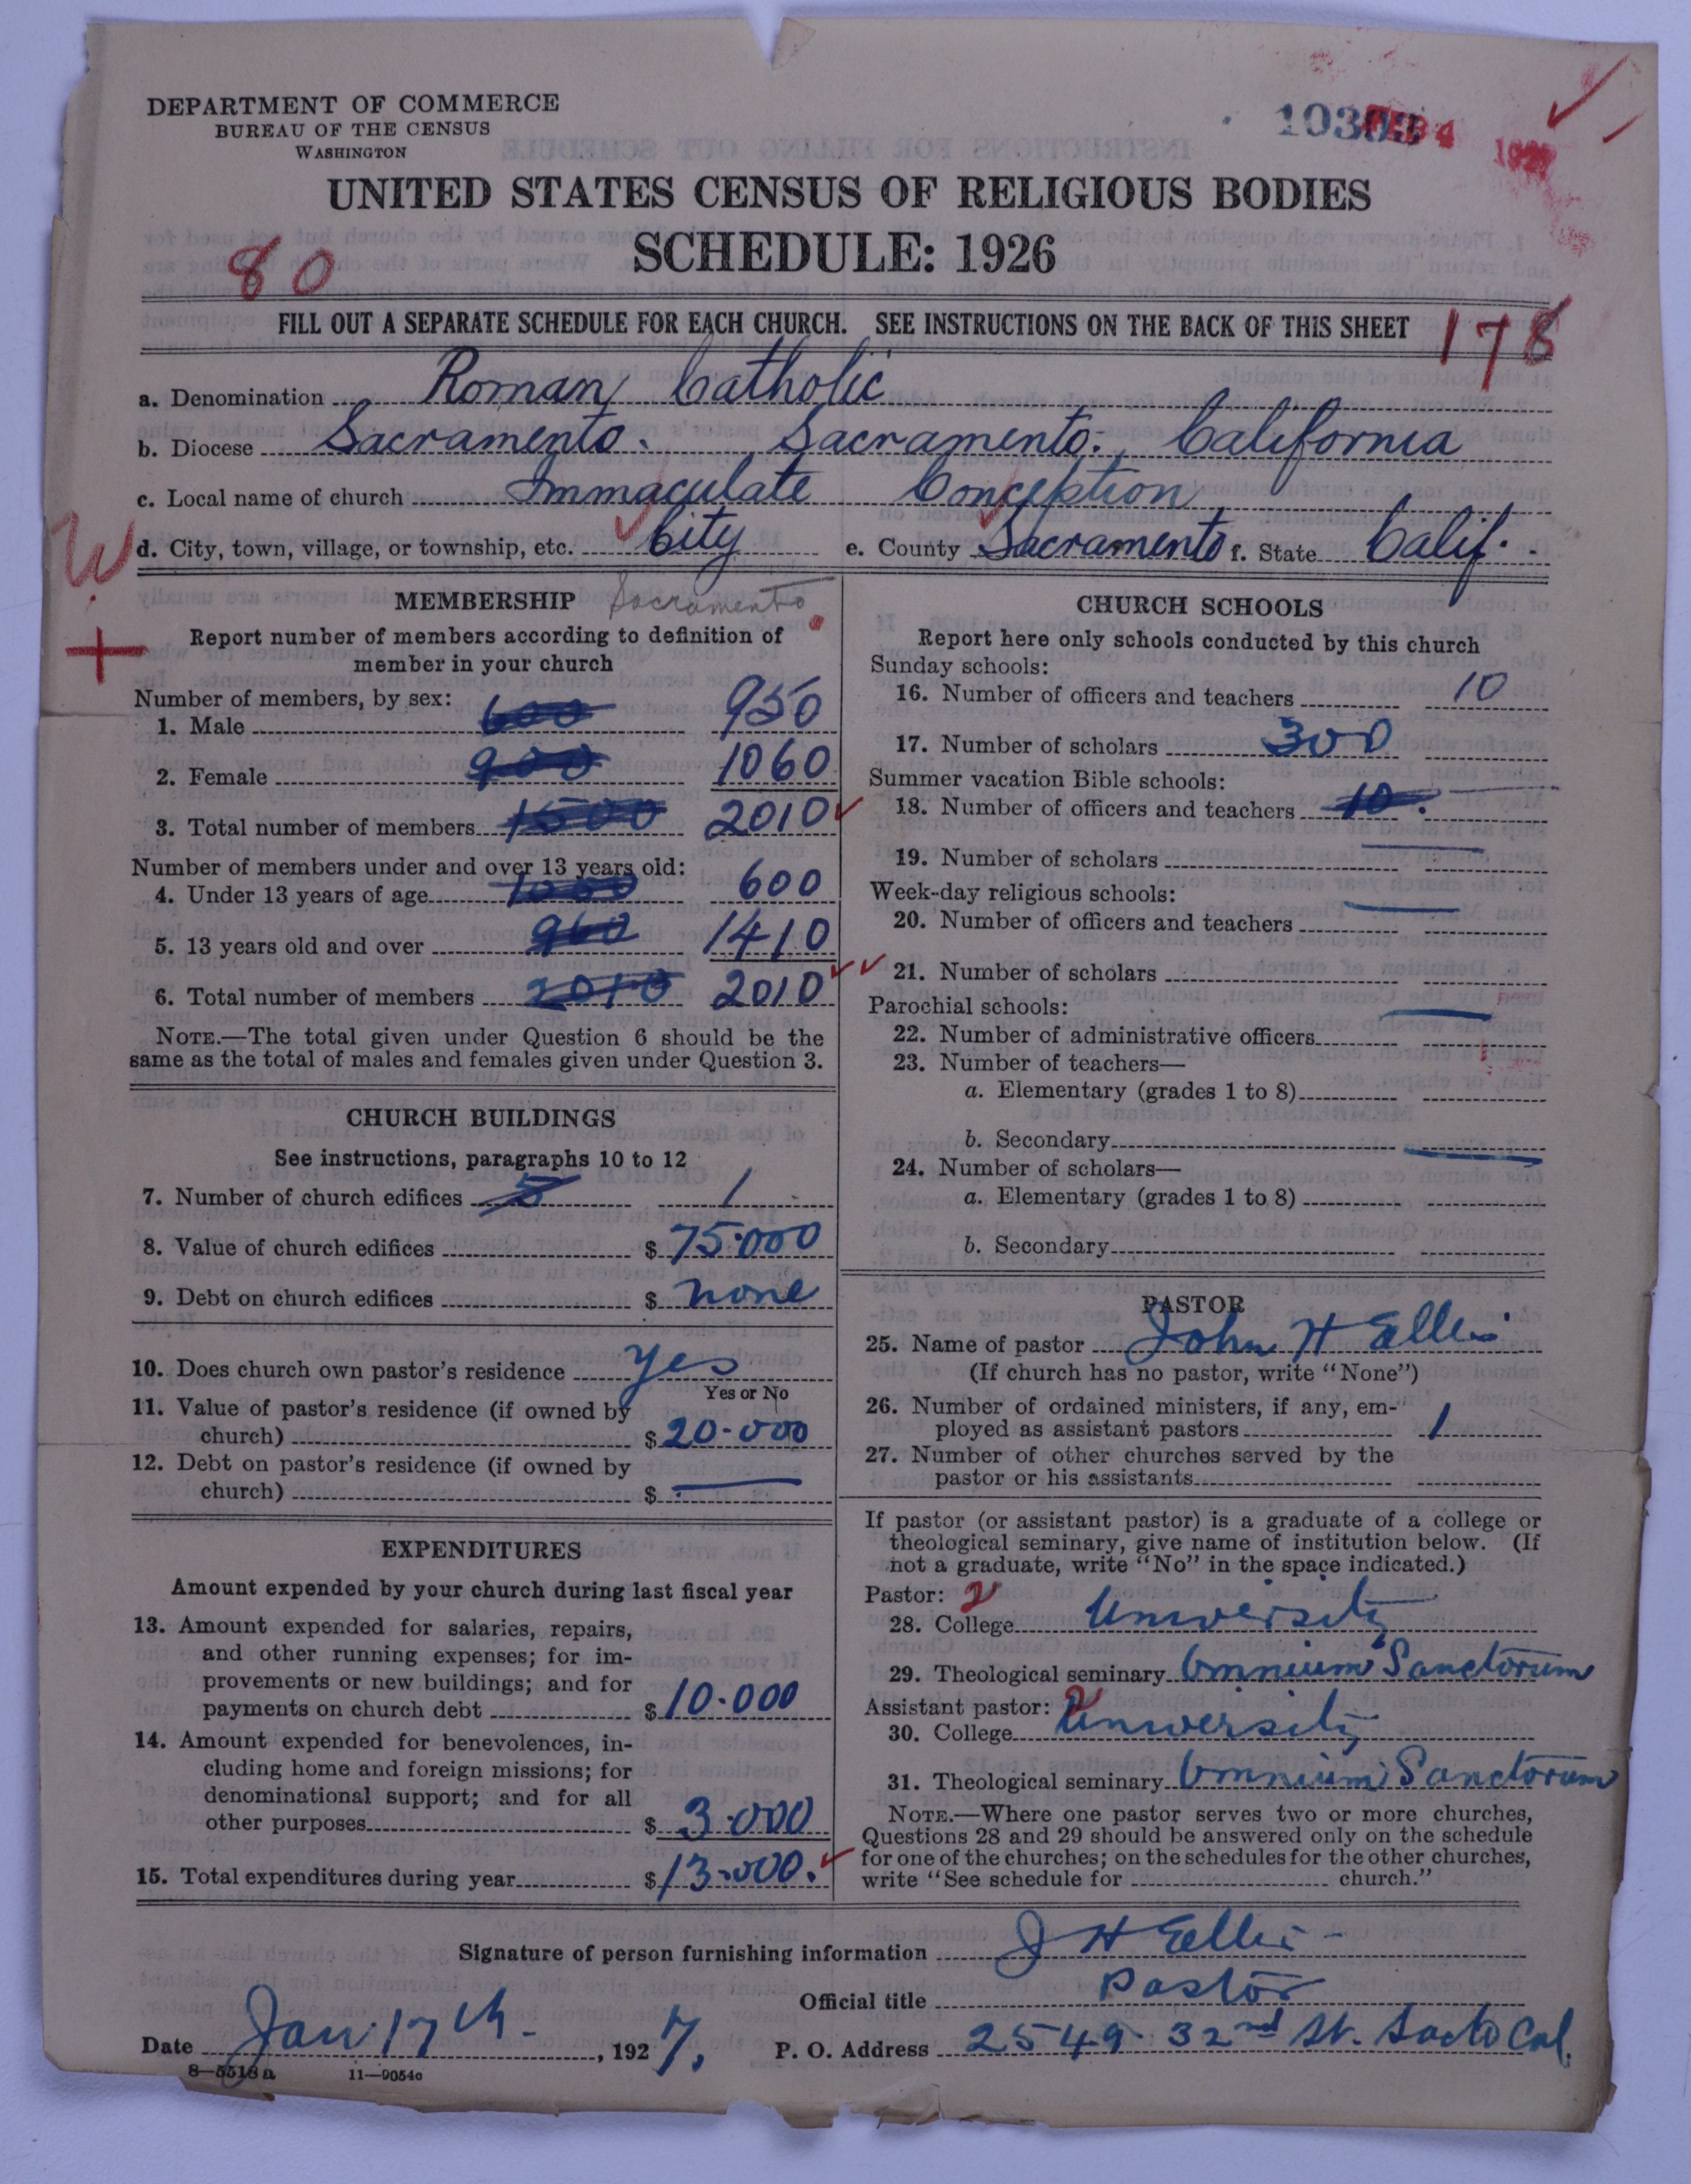 DEPARTMENT OF COMMERCE
BUREAU OF THE CENSUS
WASHINGTON
UNITED STATES CENSUS OF RELIGIOUS BODIES
SCHEDULE: 1926
80
FILL OUT A SEPARATE SCHEDULE FOR EACH CHURCH. SEE INSTRUCTIONS ON THE BACK OF THIS SHEET
178
a. Denomination Roman Catholic
b. Diocese Sacramento. Sacramento. California
c. Local name of church Immaculate Conception
W
d. City, town, village, or township, etc. City e. County Sacramento f. State Calif.
MEMBERSHIP Sacramento
Report number of members according to definition of
member in your church
Number of members, by sex:
1. Male 600 950
2. Female 900 1060
3. Total number of members 1500 2010
Number of members under and over 13 years old:
4. Under 13 years of age 1050 600
5. 13 years old and over 960 1410
6. Total number of members 2010 2010
NOTE.—The total given under Question 6 should be the
same as the total of males and females given under Question 3.
CHURCH BUILDINGS
See instructions, paragraphs 10 to 12
7. Number of church edifices 1
8. Value of church edifices $ 75.000
9. Debt on church edifices $ none
10. Does church own pastor's residence yes
Yes or No
11. Value of pastor's residence (if owned by
church) $ 20-000
12. Debt on pastor's residence (if owned by
church) $ —
EXPENDITURES
Amount expended by your church during last fiscal year
13. Amount expended for salaries, repairs,
and other running expenses; for im-
provements or new buildings; and for
payments on church debt $ 10.000
14. Amount expended for benevolences, in-
cluding home and foreign missions; for
denominational support; and for all
other purposes $ 3.000
15. Total expenditures during year $ 13.000.
CHURCH SCHOOLS
Report here only schools conducted by this church
Sunday schools:
16. Number of officers and teachers 10
17. Number of scholars 300
Summer vacation Bible schools:
18. Number of officers and teachers 10.
19. Number of scholars
Week-day religious schools:
20. Number of officers and teachers
21. Number of scholars
Parochial schools:
22. Number of administrative officers
23. Number of teachers—
a. Elementary (grades 1 to 8)
b. Secondary
24. Number of scholars—
a. Elementary (grades 1 to 8)
b. Secondary
PASTOR
25. Name of pastor John H Ellis
(If church has no pastor, write "None")
26. Number of ordained ministers, if any, em-
ployed as assistant pastors 1
27. Number of other churches served by the
pastor or his assistants
If pastor (or assistant pastor) is a graduate of a college or
theological seminary, give name of institution below. (If
not a graduate, write "No" in the space indicated.)
Pastor: 2
28. College University
29. Theological seminary Omnium Sanctorum
Assistant pastor: 2
30. College University
31. Theological seminary Omnium Sanctorum
NOTE.—Where one pastor serves two or more churches,
Questions 28 and 29 should be answered only on the schedule
for one of the churches; on the schedules for the other churches,
write "See schedule for church."
Signature of person furnishing information J H Ellis
Official title Pastor
Date Jan. 17th. , 1927. P. O. Address 2549. 32nd St. Sacto Cal.
8—5518a 11—9054c